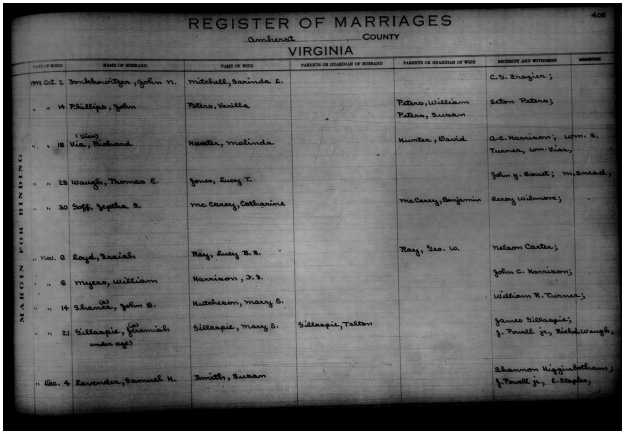 REGISTER OF MARRIAGES
406
Amherst COUNTY
VIRGINIA
DATE OF BOND NAME OF HUSBAND NAME OF WIFE PARENTS OR GUARDIAN OF HUSBAND PARENTS OR GUARDIAN OF WIFE SECURITY AND WITNESSES
Oct. 2 John N. Mitchell, Sarinda C. C. S. Frazier;
" " 14 Phillips, John Peters, Verilla Peters, William Seton Peters;
Peters, Susan
(Vias)
" " 18 Via, Richard Hunter, Malinda Hunter, David A.C. Harrison; Wm. S.
Turner, Wm. Vias,
" " 28 Waugh, Thomas E. Jones, Lucy T. John Y. M. Snead,
" " 30 Goff, Zeptha S. McCarey, Catharine McCarey, Benjamin Leroy Wilmore;
" Nov. 6 Loyd, Isaiah Ray, Lucy B. S. Ray, Geo. W. Nelson Carter;
" " 8 Myers, William Harrison, John C. Harrison;
" " 14 John D. Hutcheson, Mary S. William R. Turner;
" " 21 Gillaspie, Jeremiah Gillaspie, Mary S. Gillaspie, Talton James Gillaspie;
under age) J. Powell jr, Waugh,
" Dec. 4 Lavender, Samuel H. Smith, Susan Shannon Higginbotham;
J. Powell jr, C. Staples,
MARGIN FOR BINDING